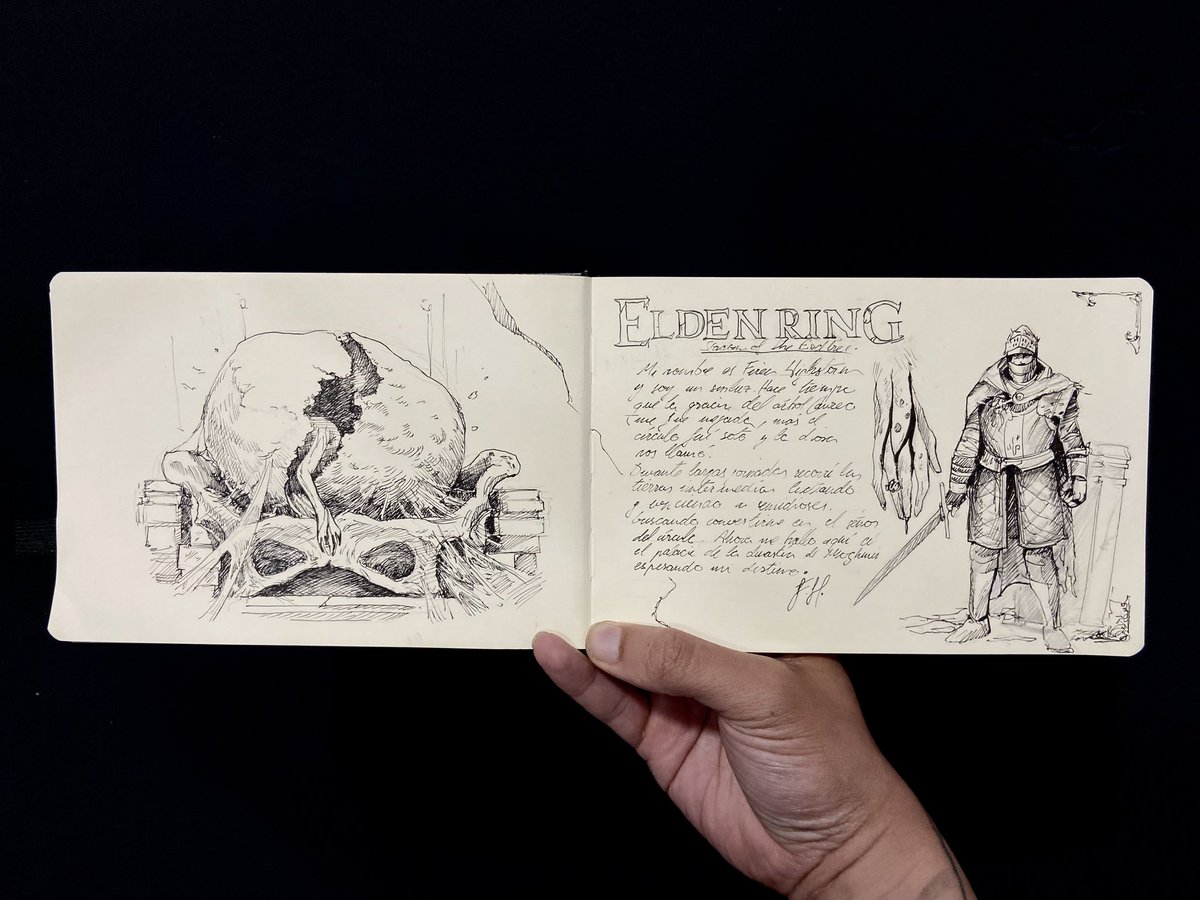 ELDEN RING
Shadow of the Erdtree.
Mi nombre es
y soy un sinluz. Hace tiempo
que la gracia del árbol áureo
me fue negada, mas el
círculo fué roto y la diosa
nos llamó.
Durante largas jornadas recorrí las
tierras intermedias luchando
y venciendo a semidioses.
buscando convertirme en el señor
del círculo. Ahora me hallo aquí en
el palacio de la dinastía de Moghwyn
esperando mi destino.
F.H.